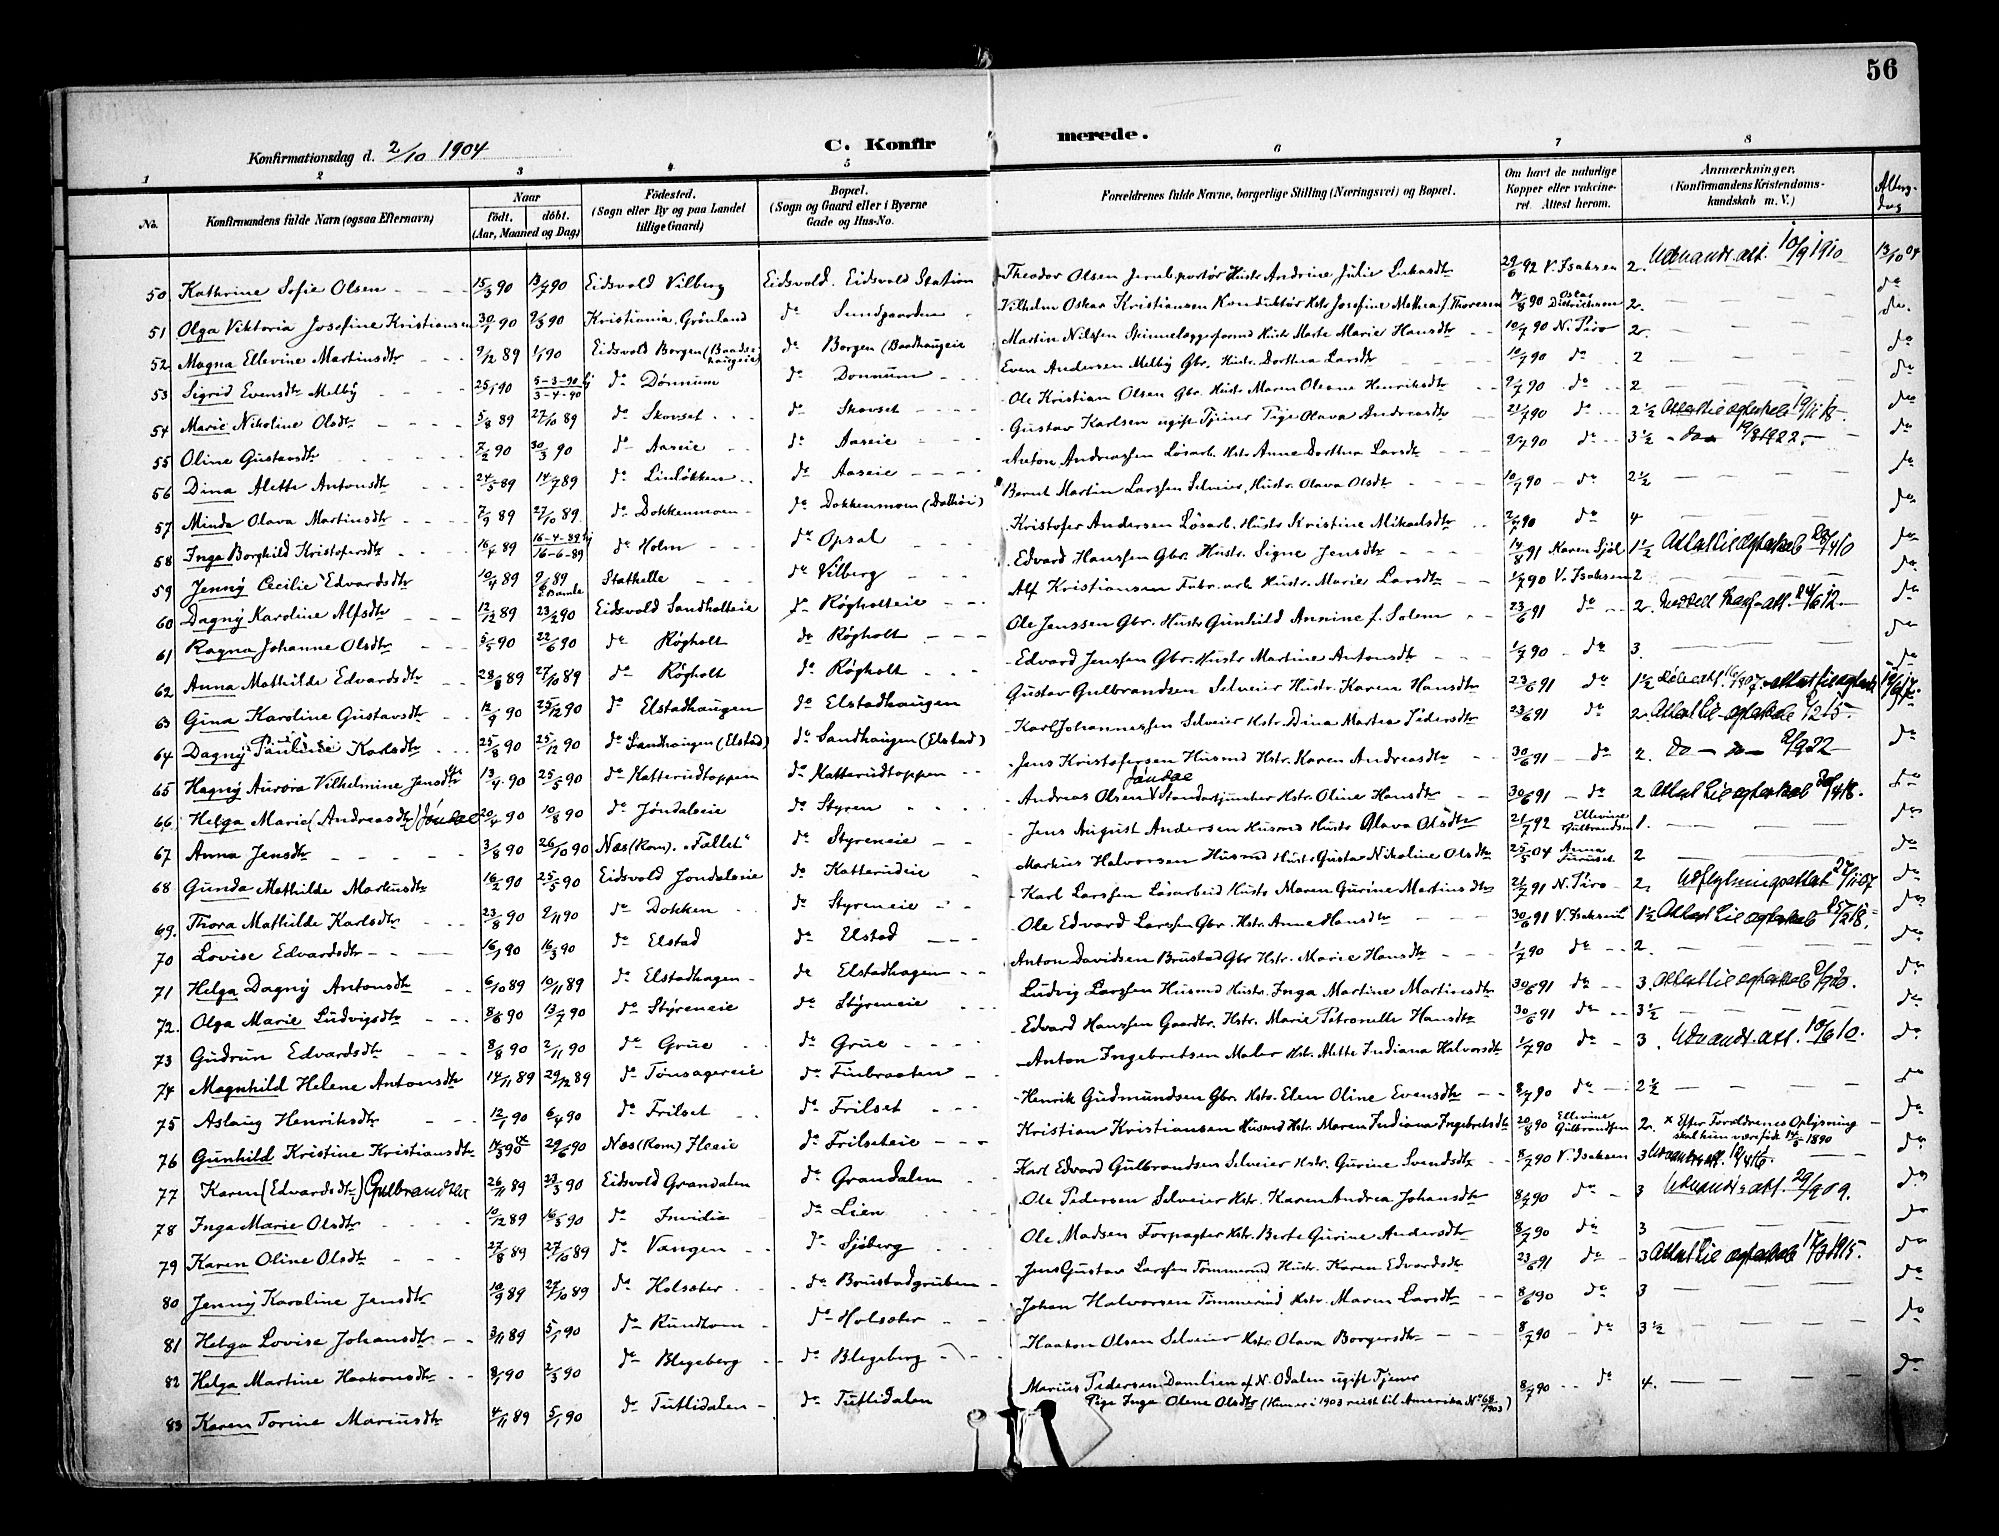 56
C. Konfirmerede.
Konfirmationsdag d. 2/10 1904
1 2 3 4 5 6 7 8
No. Konfirmandens fulde Navn (ogsaa Efternavn) Naar født. døbt. (Aar, Maaned og Dag) Fødested. (Sogn eller By og paa Landet tillige Gaard) Bopæl. (Sogn og Gaard eller i Byerne Gade og Hus-No. Forældrenes fulde Navne, borgerlige Stilling (Næringsvei) og Bopæl. Om havt de naturlige Kopper eller vakcineret. Attest herom. Anmærkninger. (Konfirmandens Kristendomskundskab m. V.)
50 Kathrine Sofie Olsen 15/3 90 13/7 90 Eidsvold Vilberg Eidsvold. Eidsvold Station Theodor Olsen Jernb.portör Hustr Andrine Julie 29/6 92 V. Isaksen 2. Udvandr. att. 10/9 1910 13/10 04
51 Olga Viktoria Josefine Kristiansen 30/1 90 9/3 90 Kristiania. Grönland do Sundgaarden Vilhelm Oskar Kristiansen Konduktör Hstr Josefine Mathea f. Thoresen 2. do
52. Magna Ellevine Martinsdtr 9/12 89 1/1 90 Eidsvold Borgen (Baadhaugeie) do Borgen (Baadhaugeie Martin Nilsen Hustr Marte Marie Hansdtr 10/7 90 N. Piro 2. do.
53 Sigrid Evensdtr Melby 25/1 90 5-3-90 3-4-90 do Dönnum do Donnum Even Andersen Melby Gbr. Hustr. Dorthea Larsdtr 10/7 90 do 2 do
54 Marie Nikoline Olsdtr 5/8 89 27/10 89 do Skovset do Skovset Ole Kristian Olsen Gbr. Hustr Maren Oleane Henriksdtr 9/7 90 do 2 do
55 Oline Gustavsdtr 7/2 90 30/3 90 do Aaseie do Aaseie Gustav Karlsen ugift Tjener Pige Olava Andreasdtr 21/7 90 do 2 1/2 do
56 Dina Alette Antonsdtr 24/5 89 14/7 89 do Linlökken do Aaseie Anton Andreassen Lösarb. Hstr Anne Dorthea Larsdtr 9/7 90 do 3 1/2 - do - 19/8 1922. do
57 Minda Olava Martinsdtr 7/9 89 27/10 89 do Dokkenmoen do Dokkenmoen (Dalhöi) Bernt Martin Larssen Selveier, Hustr. Olava Olsdtr 10/7 90 do 2 1/2 do
58 Inga Borghild Kristofersdtr 16/4 89 16-4-89 16-6-89 do Holm do Opsal Kristofer Andersen Lösarb. Hustr Kristine Mikaelsdtr 2/7 90 do 4 do
59 Jenny Cecilie Edvardsdtr 10/4 89 9/6 89 Stathelle do Vilberg Edvard Hanssen Gbr. Hustr. Signe Jensdtr 14/8 91 Karen Sjöl 1 1/2 do
60 Dagny Karoline Alfsdtr 12/12 89 23/2 90 Eidsvold Sandholteie do Røgholteie Alf Kristiansen Fabr. arb. Hustr. Marie Larsdtr 1/7 90 V. Isaksen 2 do
61 Ragna Johanne Olsdtr 5/5 90 22/6 90 do Røgholt do Røgholt Ole Jenssen Gbr. Hustr Gunhild Annine f. Solem 23/6 91 do 2. do
62 Anna Mathilde Edvardsdtr 28/8 89 27/10 89 do Røgholt do Røgholt Edvard Jenssen Gbr. Hustr Martine Antonsdtr 1/7 90 do 3. do
63 Gina Karoline Gustavsdtr 12/9 90 25/12 90 do Elstadhaugen do Elstadhaugen Gustav Gulbrandsen Selveier Hustr. Karen Hansdtr 23/6 91 do 1 1/2
64 Dagny Pauline Karlsdtr 25/8 90 25/12 90 do Sandhaugen (Elstad) do Sandhaugen (Elstad) Karl Johannessen Selveier Hstr. Dina Martea Pedersdtr 23/6 91 do 2.
65 Hagny Aurora Vilhelmine Jensdtr 13/4 90 25/5 90 do Katterudtoppen do Katterudtoppen Jens Kristofersen Husmd Hstr. Karen Andreasdtr 30/6 91 do 2. do
66 Helga Marie (Andreasdtr) Jöndae 20/4 90 10/8 90 do Jöndaleie do Styren Andreas Olsen Jöndae Standartjunker Hstr. Oline Hansdtr 30/6 91 do 2 do
67 Anna Jensdtr 3/8 90 26/10 90 Næs (Rom). "Fallet" do Styreneie Jens August Andersen Husmd Hustr Olava Olsdtr 21/7 92 Ellevine Gulbrandsen 1. do
68 Gunda Mathilde Markusdtr 16/2 90 25/5 90 Eidsvold Jondaleie do Katterudeie Markus Halvorsen Husmd Hustr Gusta Nikoline Olsdtr 25/5 04 Anna 2 do
69. Thora Mathilde Karlsdtr 23/8 90 9/11 90 do Dokken do Styreneie Karl Larssen Lösarbeid Hustr Maren Gurine Martinsdtr 21/7 91 N. Piro 2. Udflytningsattest 27/11 07 do
70 Lovise Edvardsdtr 16/1 90 16/3 90 do Elstad do Elstad Ole Edvard Larssen Gbr. Hstr. Anne Hansdtr 30/6 91 V. Isaksen 1 1/2 do
71 Helga Dagny Antonsdtr 6/10 89 10/11 89 do Elstadhagen do Elstadhagen Anton Davidsen Brustad Gbr Hstr. Marie Hansdtr 1/7 90 do 2. do
72. Olga Marie Ludvigsdtr 8/6 90 13/7 90 do Styreneie do Styreneie Ludvig Larssen Husmd Hustr. Inga Martine Martinsdtr 30/6 91 do 3. do
73 Gudrun Edvardsdtr 8/8 90 2/11 90 do Grue do Grue Edvard Hanssen Gaardbr. Hstr. Marie Petronelle Hansdtr 30/6 91 do 3 1/2 do
74 Magnhild Helene Antonsdtr 14/11 89 29/12 89 do Tönsagereie do Finbraaten Anton Ingebretsen Maler Hstr. Alette Indiana Halvorsdtr 1/7 90 do 3. Udvandr. att. 10/6 10. do
75 Aslaug Henriksdtr 12/1 90 6/4 90 do Frilset do Frilset Henrik Gudmundsen Gbr. Hstr. Elen Oline Evensdtr 8/7 90 do 2 1/2 do
76 Gunhild Kristine Kristiansdtr 14/3 90 29/6 90 Næs (Rom) do Frilseteie Kristian Kristiansen Husmd Hstr. Maren Indiana Ingebretsdtr 20/8 90 Ellevine Gulbrandsen 2. x Efter Forældrenes Oplysning skal hun være född 14/5 1890 do
77 Karen (Edvardsdtr) Gulbrandsen 26/11 89 23/3 90 Eidsvold Grandalen do Grandalen Karl Edvard Gulbrandsen Selveier Hstr. Gurine Svendsdtr 8/7 90 V. Isaksen 3 do
78 Inga Marie Olsdtr 10/12 89 16/3 90 do Invidia do Lien Ole Pedersen Selveier Hstr. Karen Andrea Johansdtr 8/7 90 do 3 Udvandr. att. 29/9 09. do
79 Karen Oline Olsdtr 27/8 89 27/10 89 do Vangen do Sjöberg Ole Madsen Forpagter Hstr. Berte Gurine Andersdtr 8/7 90 do 3 do
80 Jenny Karoline Jensdtr 10/9 89 27/10 89 do Holsæter do Brustadgruben Jens Gustav Larssen Tömmermd Hustr. Karen Edvardsdtr 23/6 91 do 3 do
81 Helga Lovise Johansdtr 3/11 89 5/1 90 do Rundtom do Holsæter Johan Halvorsen Tömmermd Hstr. Maren Larsdtr 8/6 90 do 3 do
82 Helga Martine Haakonsdtr 8/1 90 2/3 90 do Blegeberg do Blegeberg Haakon Olsen Selveier Hstr. Olava Borgersdtr 8/7 90 do 3 1/2 do
83 Karen Torine Mariusdtr 4/11 89 5/1 90 do Tutlidalen do Tutlidalen Marius Pedersen Damlien af N. Odalen ugift Tjener 8/7 90 do 4. do
Pige Inga Olene Olsdtr (Hun er i 1903 reist til Amerika No 68/1903)